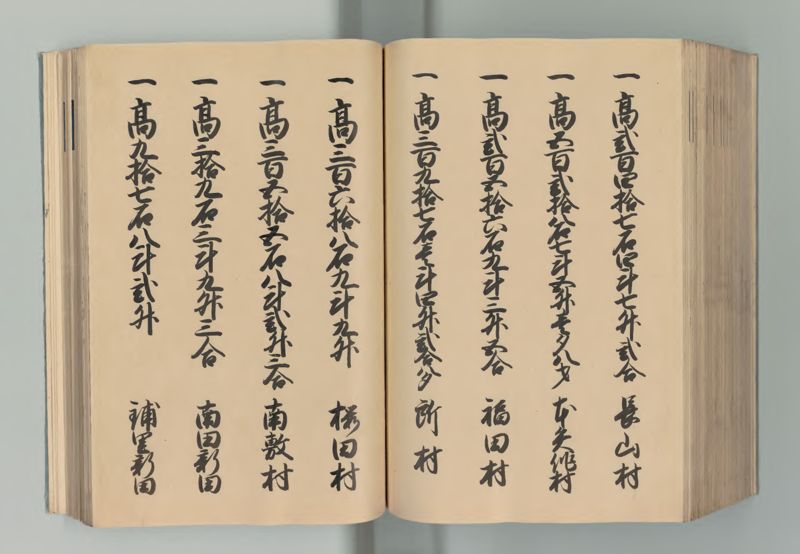 一 高弐百四拾七石四斗七升弐合 長山村
一 高五百弐拾八石七斗五升壱夕八才 本矢作村
一 高弐百五拾六石九斗三升五合 福田村
一 高三百九拾七石壱斗四升弐合八夕 所村
一 高三百六拾八石九斗九升 桜田村
一 高三百五拾五石八斗弐升三合 南敷村
一 高三拾九石三斗九升三合 南田新田
一 高九拾七石八斗弐升 新田